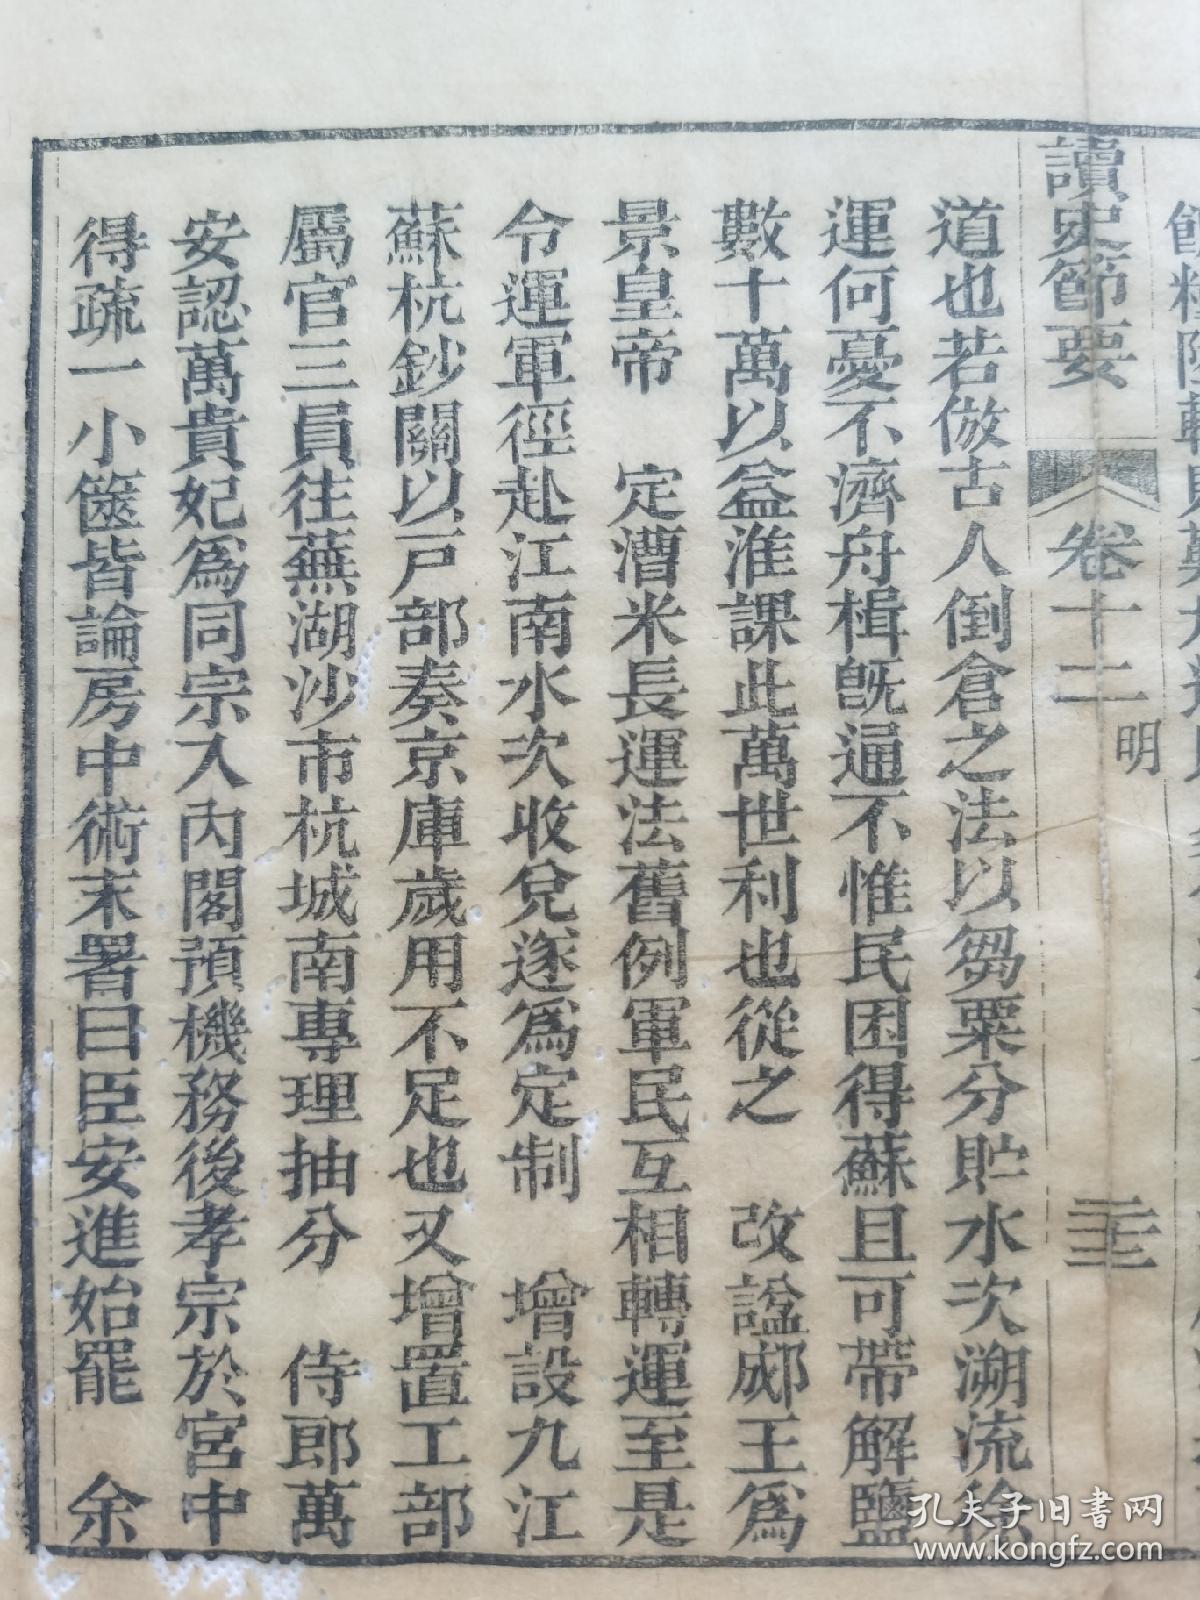 讀史節要 卷十二 明 二十三
道也若倣古人倒倉之法以芻粟分貯水次溯流徐
運何憂不濟舟楫旣通不惟民困得蘇且可帶解鹽
數十萬以益淮課此萬世利也從之 改諡郕王爲
景皇帝 定漕米長運法舊例軍民互相轉運至是
令運軍徑赴江南水次收兌遂爲定制 增設九江
蘇杭鈔關以戸部奏京庫歲用不足也又增置工部
屬官三員往蕪湖沙市杭城南專理抽分 侍郎萬
安認萬貴妃爲同宗入內閣預機務後孝宗於宮中
得疏一小篋皆論房中術末署曰臣安進始罷 余
孔夫子旧书网
www.kongfz.com